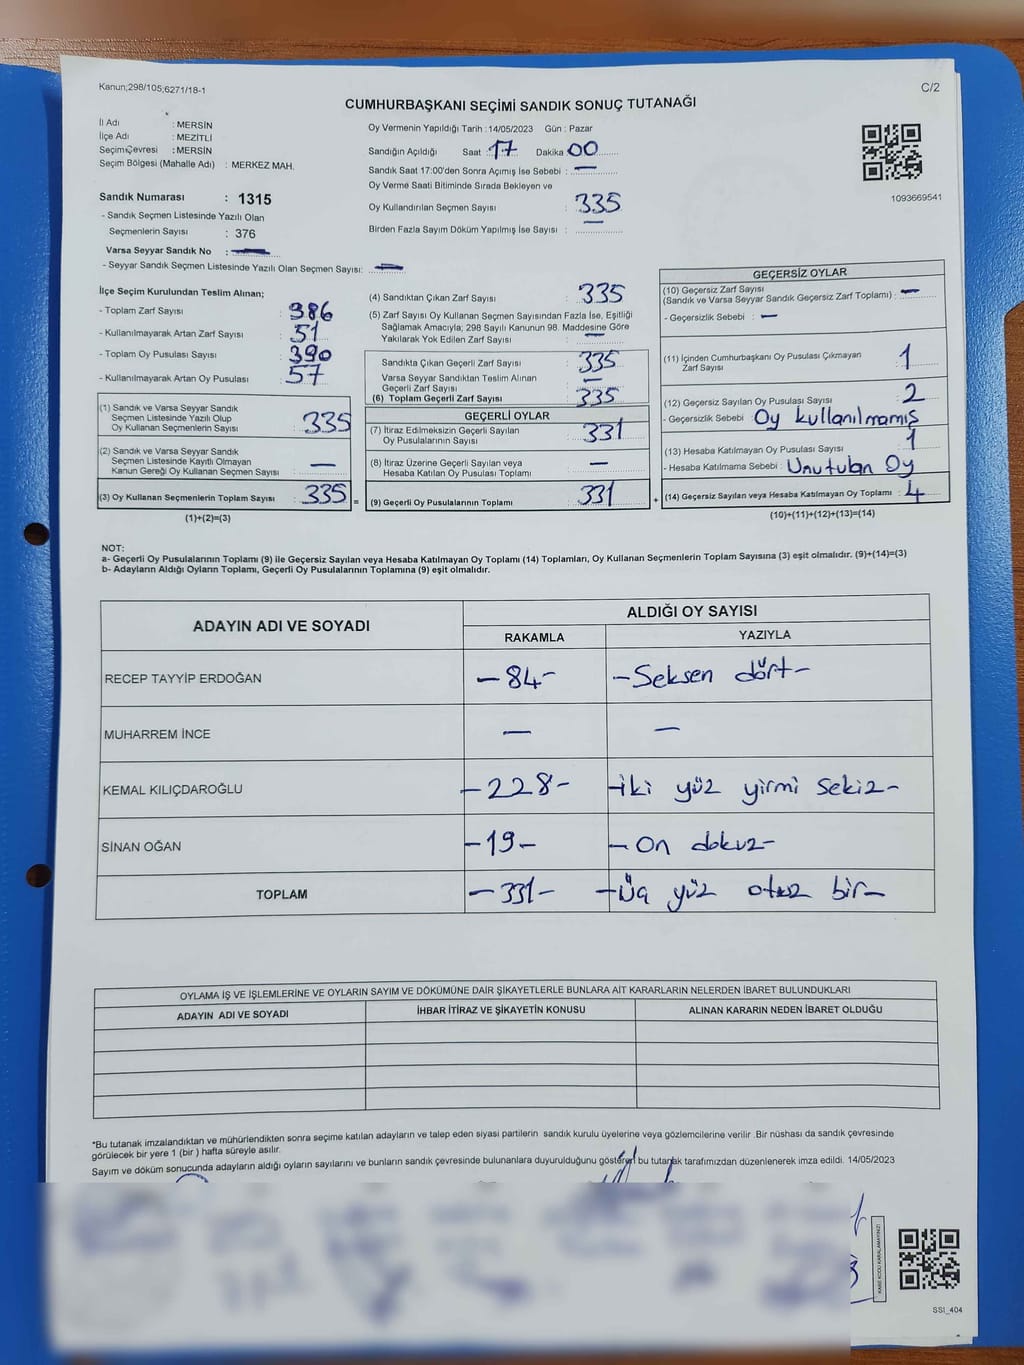 Kanun;298/105;6271/18-1
C/2
CUMHURBAŞKANI SEÇİMİ SANDIK SONUÇ TUTANAĞI
İl Adı : MERSİN
İlçe Adı : MEZİTLİ
Seçim Çevresi : MERSİN
Seçim Bölgesi (Mahalle Adı) : MERKEZ MAH.
Sandık Numarası : 1315
- Sandık Seçmen Listesinde Yazılı Olan
Seçmenlerin Sayısı : 376
Varsa Seyyar Sandık No :
- Seyyar Sandık Seçmen Listesinde Yazılı Olan Seçmen Sayısı:
Oy Vermenin Yapıldığı Tarih : 14/05/2023 Gün : Pazar
Sandığın Açıldığı Saat : 17 Dakika 00
Sandık Saat 17:00'den Sonra Açımış İse Sebebi : —
Oy Verme Saati Bitiminde Sırada Bekleyen ve
Oy Kullandırılan Seçmen Sayısı : 335
Birden Fazla Sayım Döküm Yapılmış İse Sayısı : —
1093669541
İlçe Seçim Kurulundan Teslim Alınan;
- Toplam Zarf Sayısı : 386
- Kullanılmayarak Artan Zarf Sayısı : 51
- Toplam Oy Pusulası Sayısı : 390
- Kullanılmayarak Artan Oy Pusulası : 57
(1) Sandık ve Varsa Seyyar Sandık
Seçmen Listesinde Yazılı Olup
Oy Kullanan Seçmenlerin Sayısı : 335
(2) Sandık ve Varsa Seyyar Sandık
Seçmen Listesinde Kayıtlı Olmayan
Kanun Gereği Oy Kullanan Seçmen Sayısı : —
(3) Oy Kullanan Seçmenlerin Toplam Sayısı : 335 =
(1)+(2)=(3)
(4) Sandıktan Çıkan Zarf Sayısı : 335
(5) Zarf Sayısı Oy Kullanan Seçmen Sayısından Fazla İse, Eşitliği
Sağlamak Amacıyla; 298 Sayılı Kanunun 98. Maddesine Göre
Yakılarak Yok Edilen Zarf Sayısı : —
Sandıkta Çıkan Geçerli Zarf Sayısı : 335
Varsa Seyyar Sandıktan Teslim Alınan
Geçerli Zarf Sayısı : —
(6) Toplam Geçerli Zarf Sayısı : 335
GEÇERLİ OYLAR
(7) İtiraz Edilmeksizin Geçerli Sayılan
Oy Pusulalarının Sayısı : 331
(8) İtiraz Üzerine Geçerli Sayılan veya
Hesaba Katılan Oy Pusulası Toplamı : —
(9) Geçerli Oy Pusulalarının Toplamı : 331 +
GEÇERSİZ OYLAR
(10) Geçersiz Zarf Sayısı : —
(Sandık ve Varsa Seyyar Sandık Geçersiz Zarf Toplamı)
- Geçersizlik Sebebi : —
(11) İçinden Cumhurbaşkanı Oy Pusulası Çıkmayan
Zarf Sayısı : 1
(12) Geçersiz Sayılan Oy Pusulası Sayısı : 2
- Geçersizlik Sebebi : Oy kullanılmamış
(13) Hesaba Katılmayan Oy Pusulası Sayısı : 1
- Hesaba Katılmama Sebebi : Unutulan Oy
(14) Geçersiz Sayılan veya Hesaba Katılmayan Oy Toplamı : 4
(10)+(11)+(12)+(13)=(14)
NOT:
a- Geçerli Oy Pusulalarının Toplamı (9) ile Geçersiz Sayılan veya Hesaba Katılmayan Oy Toplamı (14) Toplamları, Oy Kullanan Seçmenlerin Toplam Sayısına (3) eşit olmalıdır. (9)+(14)=(3)
b- Adayların Aldığı Oyların Toplamı, Geçerli Oy Pusulalarının Toplamına (9) eşit olmalıdır.
ADAYIN ADI VE SOYADI
ALDIĞI OY SAYISI
RAKAMLA YAZIYLA
RECEP TAYYİP ERDOĞAN -84- -Seksen dört-
MUHARREM İNCE — —
KEMAL KILIÇDAROĞLU -228- -iki yüz yirmi sekiz-
SİNAN OĞAN -19- -On dokuz-
TOPLAM -331- -Üç yüz otuz bir-
OYLAMA İŞ VE İŞLEMLERİNE VE OYLARIN SAYIM VE DÖKÜMÜNE DAİR ŞİKAYETLERLE BUNLARA AİT KARARLARIN NELERDEN İBARET BULUNDUKLARI
ADAYIN ADI VE SOYADI İHBAR İTİRAZ VE ŞİKAYETİN KONUSU ALINAN KARARIN NEDEN İBARET OLDUĞU
*Bu tutanak imzalandıktan ve mühürlendikten sonra seçime katılan adayların ve talep eden siyasi partilerin sandık kurulu üyelerine veya gözlemcilerine verilir .Bir nüshası da sandık çevresinde
görülecek bir yere 1 (bir ) hafta süreyle asılır.
Sayım ve döküm sonucunda adayların aldığı oyların sayılarını ve bunların sandık çevresinde bulunanlara duyurulduğunu gösteren bu tutanak tarafımızdan düzenlenerek imza edildi. 14/05/2023
KARE KODU KARALAMAYINIZ!
SSI_404